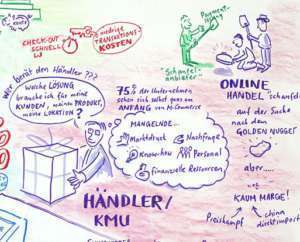 CHECK-OUT
SCHNELL
niedrige
TRANSAKTIONS-
KOSTEN
Payment-
"Schaufel-
anbieter"
Wer berät den Händler ???
Welche LÖSUNG
brauche ich für meine
KUNDEN, meinen PRODUKT,
meine LOKATION?
75% der Unternehmen
sehen sich selbst ganz am
ANFANG von M-Commerce
MANGELNDE...
Marktdruck
Nachfrage
Knowhow
Personal
finanzielle Ressourcen
HÄNDLER/
KMU
ONLINE
HANDEL
"schaufelt"
auf der Suche
nach dem
GOLDEN NUGGET
aber....
KAUM MARGE!
Preiskampf
china
direktimport